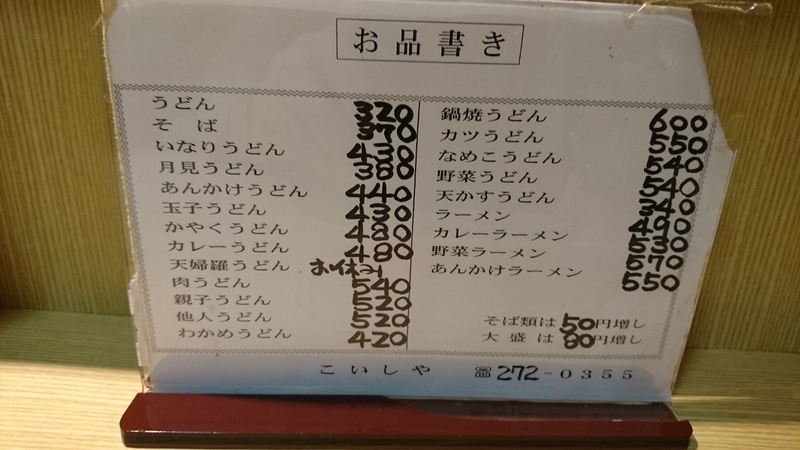 お品書き
うどん 320
そば 370
いなりうどん 430
月見うどん 380
あんかけうどん 440
玉子うどん 430
かやくうどん 480
カレーうどん 480
天婦羅うどん お休み
肉うどん 540
親子うどん 520
他人うどん 520
わかめうどん 420
鍋焼うどん 600
カツうどん 550
なめこうどん 540
野菜うどん 540
天かすうどん 340
ラーメン 490
カレーラーメン 530
野菜ラーメン 570
あんかけラーメン 550
そば類は50円増し
大盛は90円増し
こいしや ☎272-0355